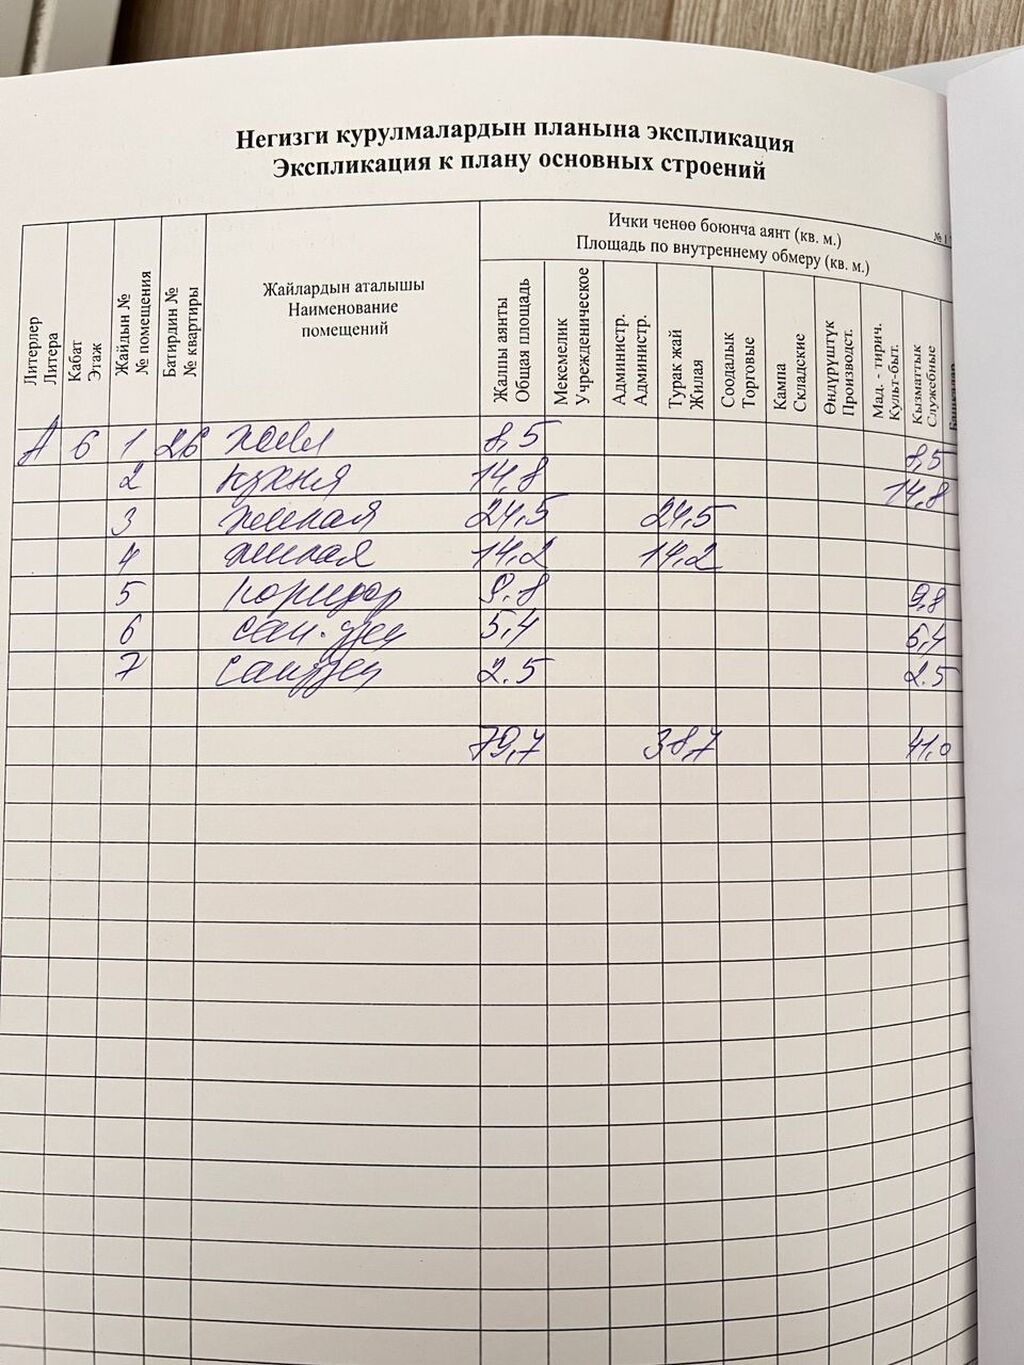 Негизги курулмалардын планына экспликация
Экспликация к плану основных строений
Литерлер Литера
Кабат Этаж
Жайдын № № помещения
Батирдин № № квартиры
Жайлардын аталышы
Наименование
помещений
Ички ченөө боюнча аянт (кв. м.)
Площадь по внутреннему обмеру (кв. м.)
Жалпы аянты Общая площадь
Мекемелик Учрежденическое
Администр. Администр.
Турак жай Жилая
Соодалык Торговые
Кампа Складские
Өндүрүштүк Производст.
Мад. - тирич. Культ-быт.
Кызматтык Служебные
А 6 1 26 холл 8,5 8,5
2 кухня 14,8 14,8
3 жилая 24,5 24,5
4 жилая 14,2 14,2
5 коридор 9.8 9,8
6 сан. узел 5,4 5,4
7 санузел 2.5 2.5
79,7 38,7 41,0